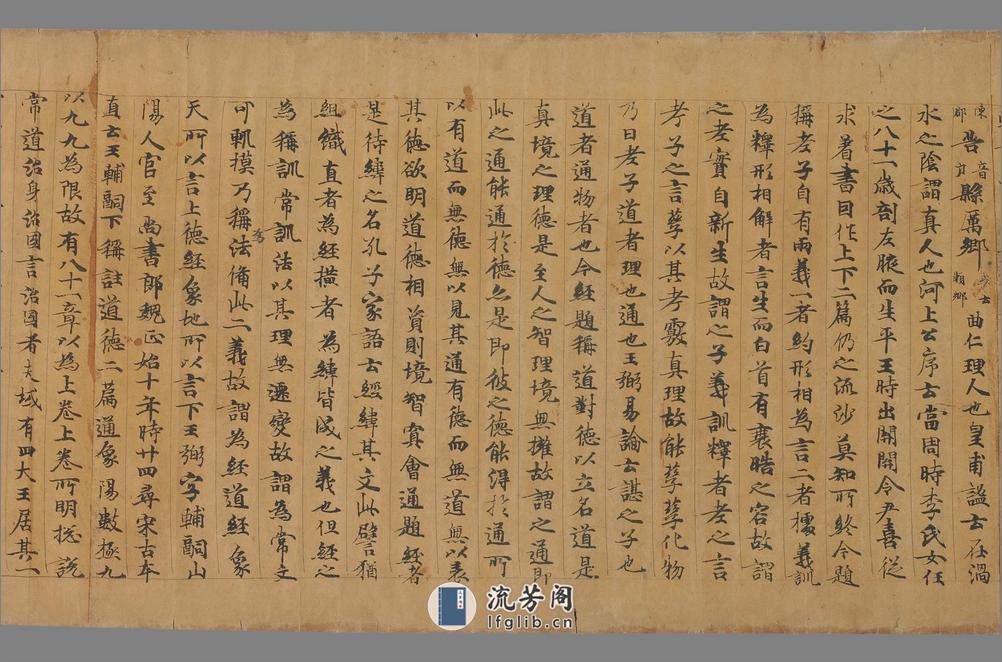 陳郡苦音縣萬鄉或云賴鄉曲仁理人也皇甫謐云在渦
水之陰謂真人也河上公序云當周時李氏女任
之八十一歲剖左腋而生平王時出關關令尹喜從
求著書因作上下二篇仍之流沙莫知所終今題
稱老子自有兩義一者約形相為言二者據義訓
為釋形相解者言生而白首有衰皓之容故謂
之老實自新生故謂之子義訓釋者老之言
考子之言孳以其考覈真理故能孳孳化物
乃曰老子道者理也通也王弼易論云諶之子也
道者通物者也今經題稱道對德以立名道是
真境之理德是至人之智理境無擁故謂之通即
此之通能通於德亦是即彼之德能得於通所
以有道而無德無以見其通有德而無道無以表
其德欲明道德相資則境智冥會通題經者
是待緯之名孔子家語云經緯其文此譬猶
組織直者為經橫者為緯皆成之義也但經之
為稱訓常訓法以其理無遷變故謂為常文
可軌摸乃稱為法備此二義故謂為經道經象
天所以言上德經象地所以言下王弼字輔嗣山
陽人官至尚書郎魏正始十年時廿四尋宋古本
直云王輔嗣下稱註道德二篇通象陽數極九
以九九為限故有八十一章以為上卷上卷所明捴說
常道治身治國言治國者夫域有四大王居其一
流芳阁
lfglib.cn